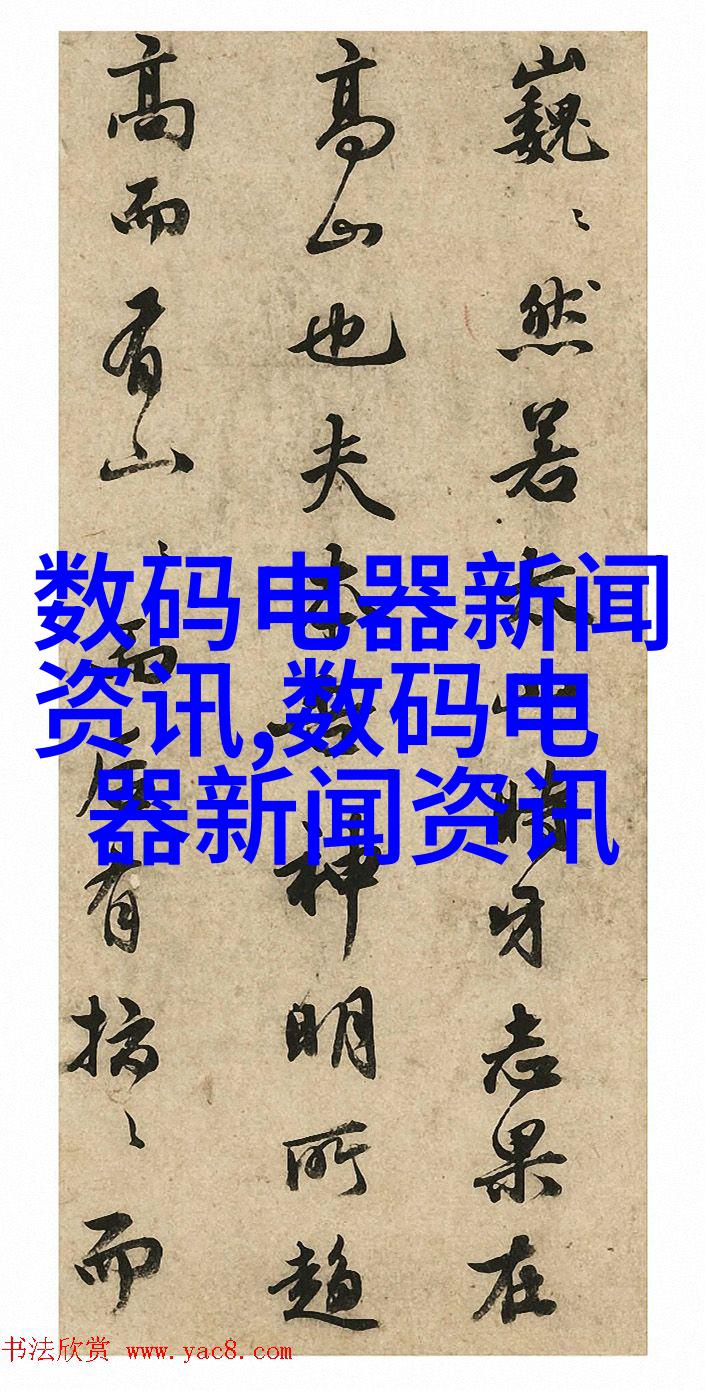 巍〻然若太山時牙志果在
高山也夫神明所趨
高而有山〻高有〻而
数码电器新闻
资讯,数码电
器新闻资讯
书法欣赏 www.yac8.com